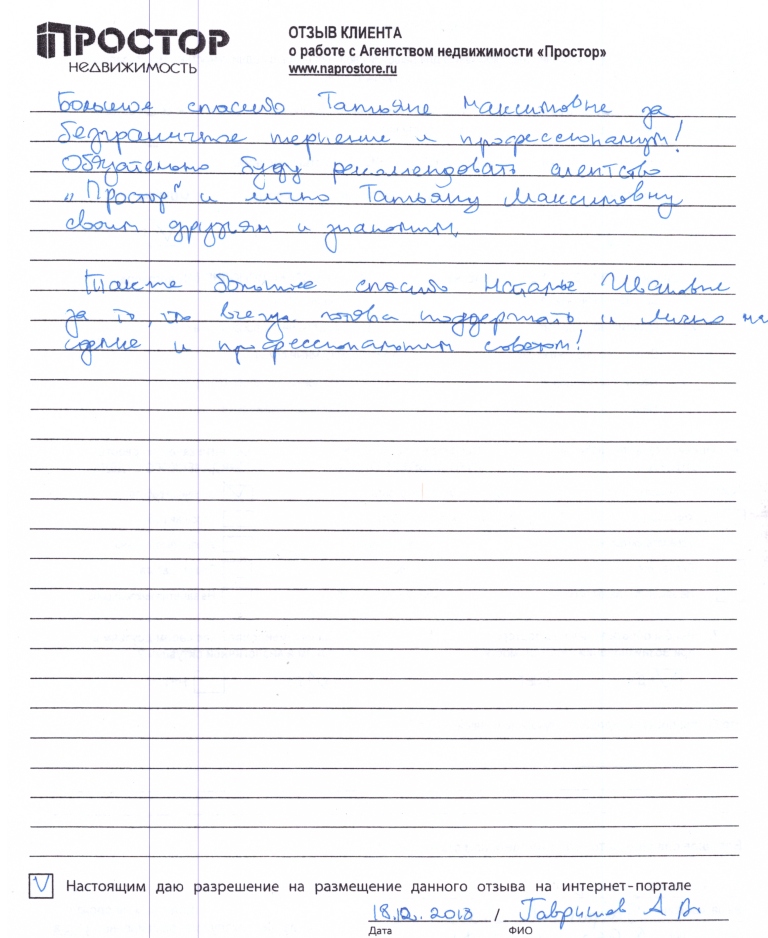 ПРОСТОР
НЕДВИЖИМОСТЬ
ОТЗЫВ КЛИЕНТА
о работе с Агентством недвижимости «Простор»
www.naprostore.ru
Большое спасибо Татьяне Максимовне за
безграничное терпение и профессионализм!
Обязательно буду рекомендовать агентство
„Простор" и лично Татьяну Максимовну
своим друзьям и знакомым.
Также большое спасибо Наталье Ивановне
за то, что всегда готова поддержать и лично на
сделке и профессиональным советом!
V Настоящим даю разрешение на размещение данного отзыва на интернет-портале
18.12.2018 / Гавришов А
Дата ФИО